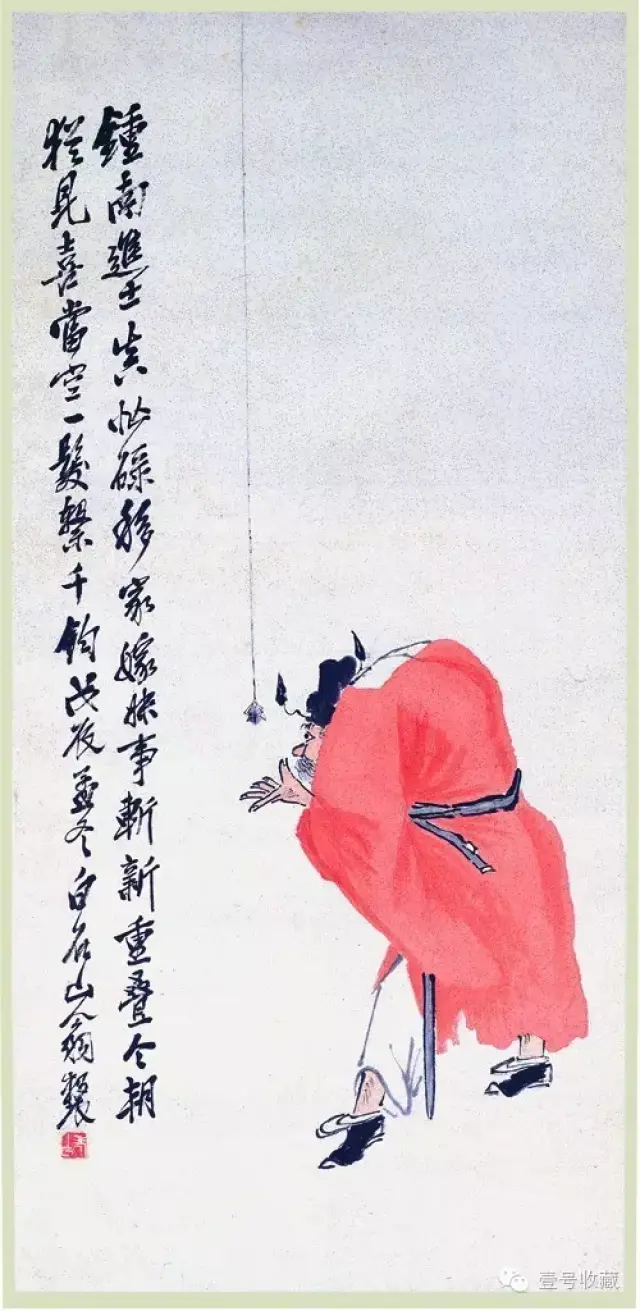 鍾南進士真忙碌移家嫁妹事斬新重叠今朝
猶見喜當空一髮繫千鈞戊辰孟冬白石山翁製
壹号收藏